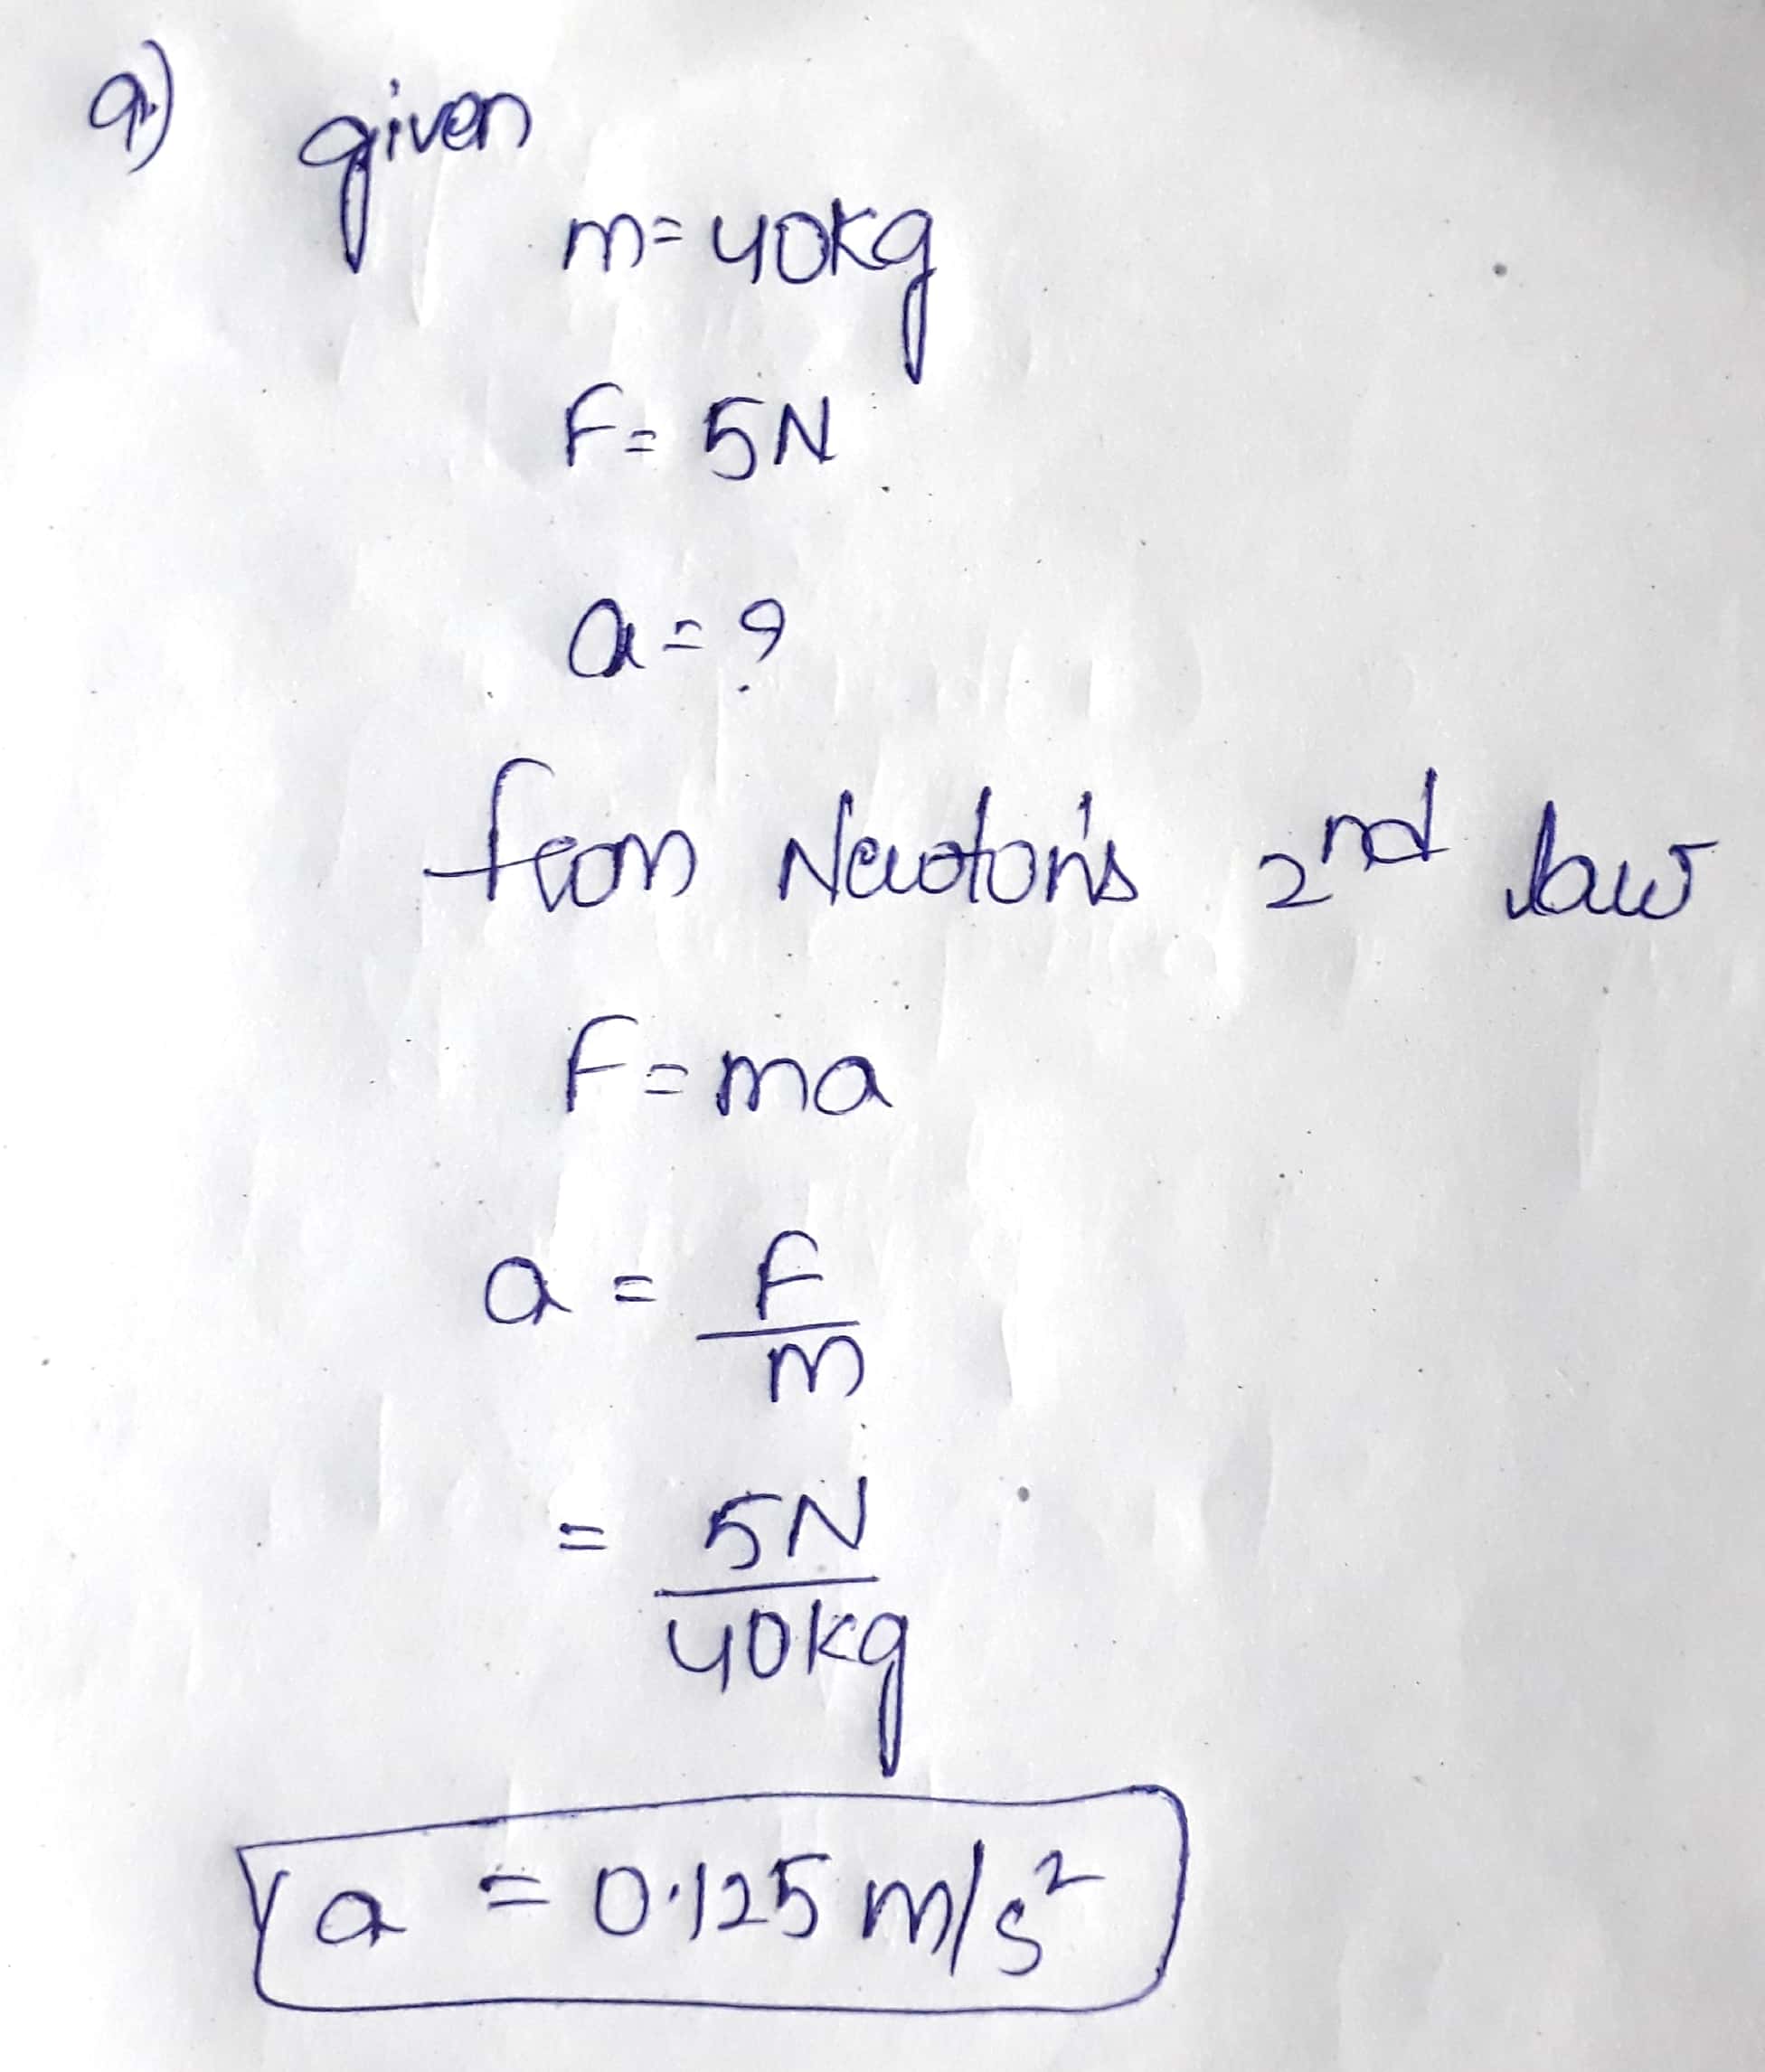 a) given
m= 40kg
F= 5N
a=?
from Newton's 2nd law
F=ma
a = F
m
= 5N
40kg
a = 0.125 m/s²